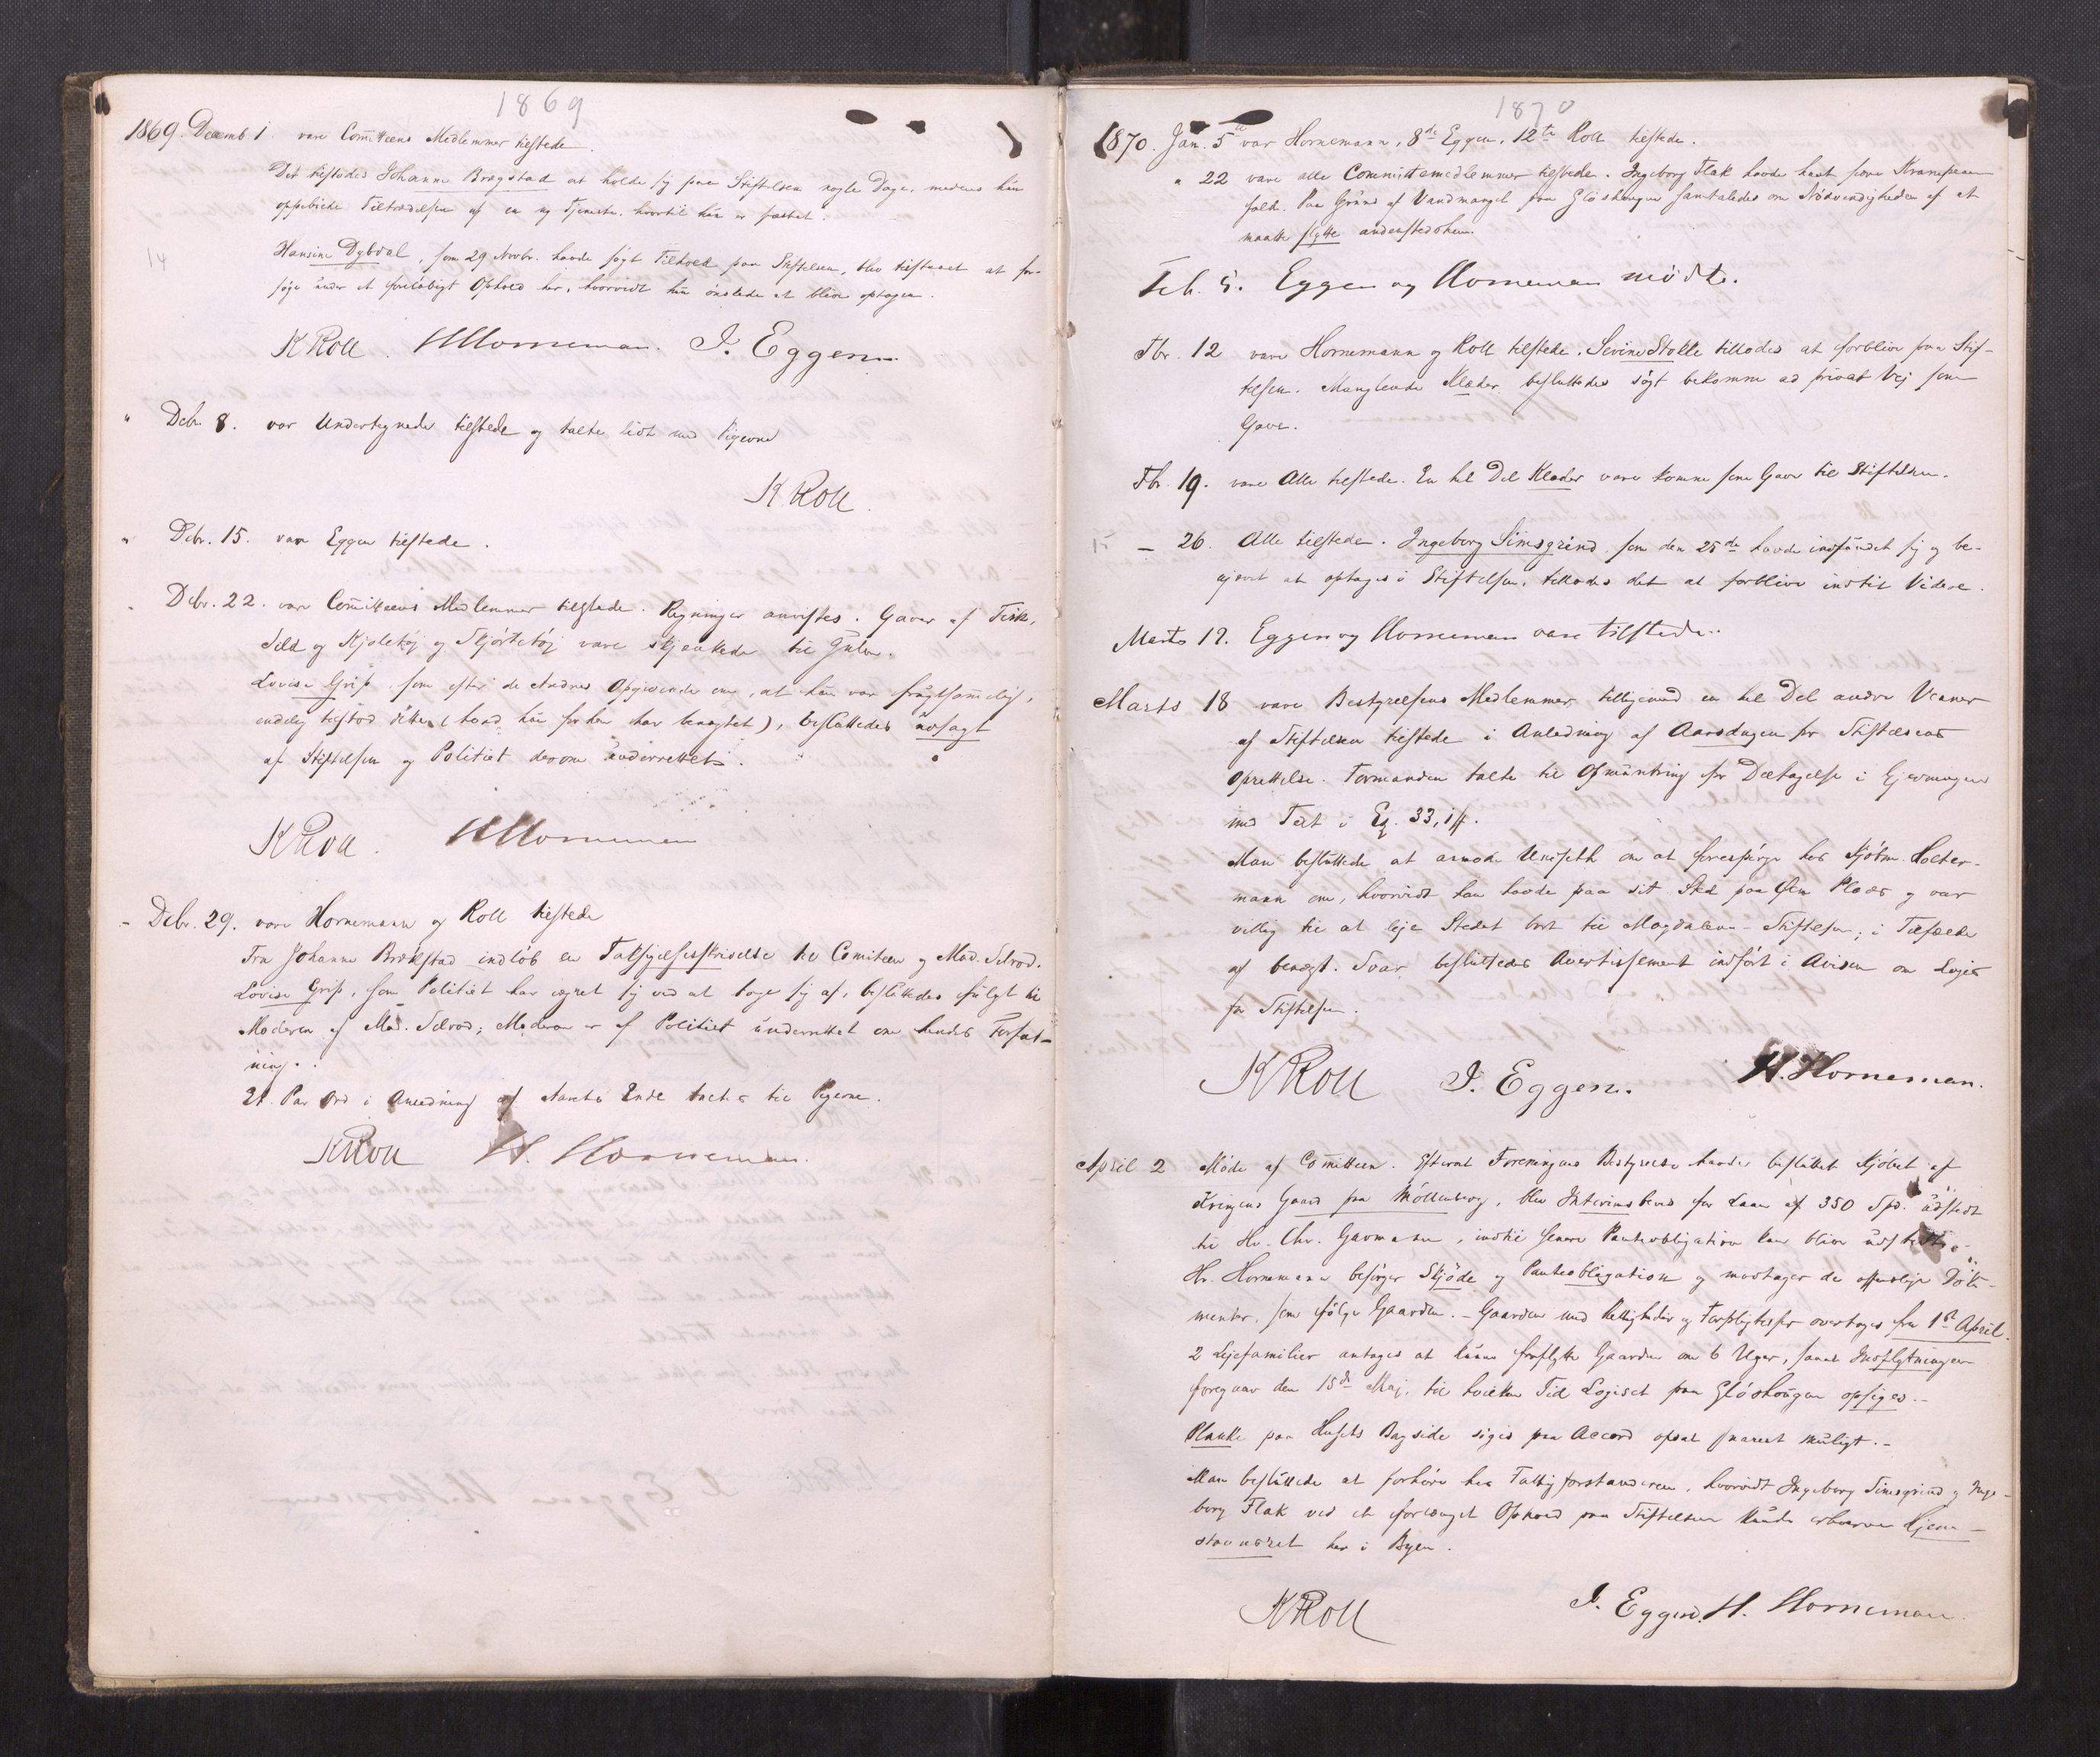 1869
1869. Decemb. 1. vare Comiteens Medlemmer tilstede.
Det tilstodes Johanne Brægstad at holde sig paa Stiftelsen nogle Dage, medens hun
oppebiede Tiltrædelsen af en ny Tjeneste, hvortil hun er fæstet.
14
Hansine Dybdal, som 29 Novbr. havde søgt Tilhold paa Stiftelsen, blev tilstaaet at for-
søge under et foreløbigt Ophold her, hvorvidt hun ønskede at blive optagen.
K Roll. H Horneman. I. Eggen
" Debr. 8. var Undertegnede tilstede og talte lidt med Pigerne
K. Roll.
" Debr. 15. var Eggen tilstede.
" Debr. 22. vare Comitteens Medlemmer tilstede. Regninger anvistes. Gaver af Fisk,
Sild og Kjoletøj og Skjørtetøj vare skjænkede til Julen.
Lovise Grip, som efter de Andres Opgivende om, at hun var frugtsommelig,
endelig tilstod dette (hvad hun forhen har benægtet), besluttedes udsagt
af Stiftelsen og Politiet derom underrettet.
K Roll. H Horneman
- Debr. 29. vare Hornemann og Roll tilstede
Fra Johanne Brækstad indløb en Taksigelsesskrivelse til Comiteen og Mad. Selrod.
Lovise Grip, som Politiet har vægret sig ved at tage sig af, besluttedes fulgt til
Moderen af Mad. Selrod; Moderen er af Politiet underrettet om hendes Forfat-
ning.
Et Par Ord i Anledning af Aarets Ende taltes til Pigerne.
K Roll H. Horneman.
1870
1870. Jan. 5te var Hornemann, 8de Eggen, 12te Roll tilstede.
" 22 vare alle Committemedlemmer tilstede. Ingeborg Flak havde havt
Paa Grund af Vandmangel paa Gløshaugen samtaledes om Nødvendigheden af at
maatte flytte andenstedshen.
Feb. 5. Eggen og Horneman mødte.
Fbr. 12 vare Hornemann og Roll tilstede. Sevine Stokke tillodes at forblive paa Stif-
telsen. Manglende Klæder besluttedes søgt bekomne ad privat Vej som
Gave.
Fbr. 19. vare Alle tilstede. En hel Del Klæder vare komne som Gave til Stiftelsen.
15
- 26. Alle tilstede. Ingeborg Simsgrind som den 25de havde indfundet sig og be-
gjeret at optages i Stiftelsen, tillodes det at forblive indtil Videre.
Marts 12. Eggen og Horneman vare tilstede.
Marts 18 vare Bestyrelsens Medlemmer tilligemed en hel Del andre Venner
af Stiftelsen tilstede i Anledning af Aarsdagen for Stiftelsens
Oprettelse. Formanden talte til Opmuntring for Deltagelse i Gjerningen
med Text i Ez. 33, 1ff.
Man besluttede at anmode Uniseth om at forespørge hos Kjøbm. Holter-
mann om, hvorvidt han havde paa sit Sted paa Ilen Plads og var
villig til at leje Stedet bort til Magdalena-Stiftelsen; i Tilfælde
af benægt. Svar besluttedes Avertissement indført i Avisen om Lojis
for Stiftelsen.
K Roll I. Eggen. H. Horneman.
April 2 Møde af Comitteen. Efterat Foreningens Bestyrelse havde besluttet Kjøbet af
Gaard paa Møllenberg, blev Interimsbevis for Laan af 350 Spd. udstedt
til Hr. Chr. Garmann, indtil senere Panteobligation kan blive udstedt.
Hr. Hornemann besørger Skjøde og Panteobligation og modtager de offentlige Doku-
menter, som følge Gaarden. - Gaarden med Rettigheder og Forpligtelser overtages fra 1st April.
2 Lejefamilier antages at kunne fraflytte Gaarden om 6 Uger, samt Indflytningen
foregaar den 15de Maj, til hvilken Tid Logiset paa Gløshaugen opsiges. -
Planke paa Husets Bagside siges paa Accord opsat snarest muligt. -
Man besluttede at forhøre hos Fattigforstanderen, hvorvidt Ingeborg Simsgrind og Inge-
borg Flak ved et forlænget Ophold paa Stiftelsen kunde erhverve Hjem-
stavnsret her i Byen.
K Roll I. Eggen. H. Horneman.